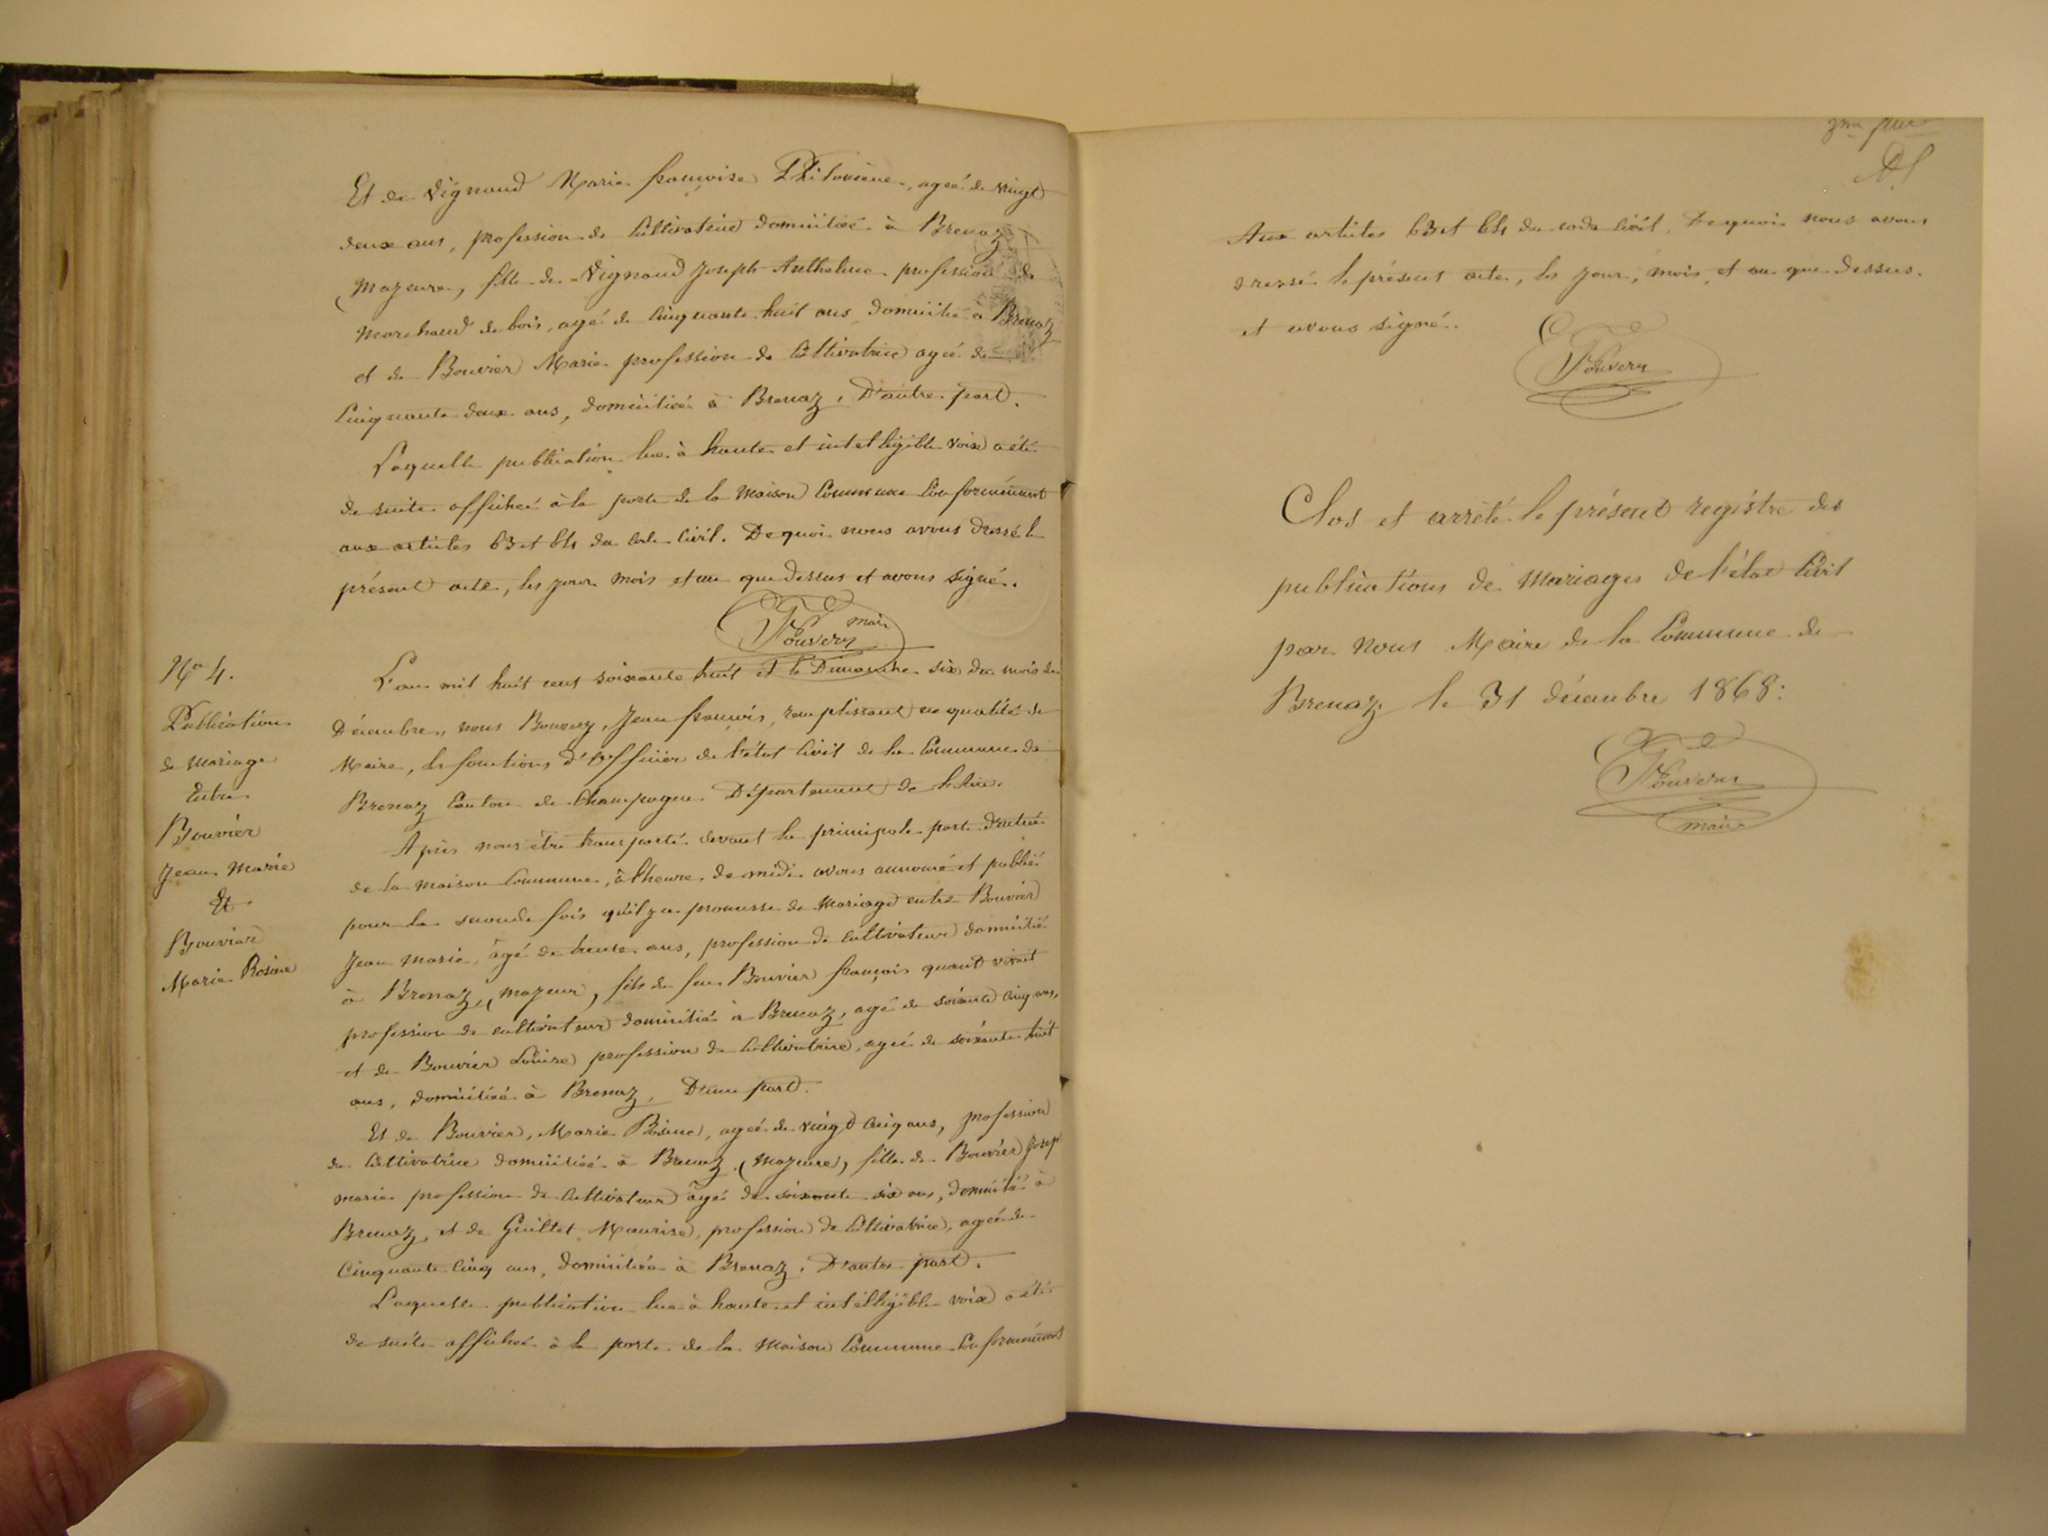 Et de Vignaud Marie françoise Philomène, agée de vingt
deux ans, profession de Cultivatrice domiciliée à Brenaz
(Majeure, fille de Vignaud Joseph Anthelme profession de
Marchand de bois, agé de Cinquante huit ans, domicilié à Brenaz
et de Bouvier Marie profession de Cultivatrice agée de
Cinquante deux ans, domiciliée à Brenaz, D'autre part.
Laquelle publication lue à haute et intelligible voix a été
de suite affichée à la porte de la Maison Commune Conformément
aux articles 63 et 64 du Code Civil. De quoi nous avons dressé le
présent acte, les jour mois et an que dessus et avons signé.
maire
No 4.
Publication
de Mariage
Entre
Bouvier
Jean Marie
Et
Bouvier
Marie Rosine
L'an mil huit cent soixante huit et le Dimanche six du mois de
Décembre, nous Jean françois, remplissant en qualité de
Maire, les fonctions d'Officier de l'état Civil de la Commune de
Brenaz Canton de Champagne Département de l'Ain.
Après nous être transporté devant la principale porte d'entrée
de la Maison Commune, à l'heure de midi avons annoncé et publié
pour la seconde fois qu'il y a promesse de Mariage entre Bouvier
Jean Marie, âgé de trente ans, profession de Cultivateur domicilié
à Brenaz, (Majeur, fils de feu Bouvier françois quand vivait
profession de cultivateur domicilié à Brenaz, agé de soixante Cinq ans,
et de Bouvier Louise profession de Cultivatrice, agée de soixante huit
ans, domiciliée à Brenaz, D'une part.
Et de Bouvier, Marie Rosine, agée de vingt Cinq ans, profession
de Cultivatrice domiciliée à Brenaz, (Majeure, fille de Bouvier Josep
marie profession de Cultivateur âgé de soixante six ans, domicilié à
Brenaz, et de Guillet Maurise, profession de Cultivatrice, agée de
Cinquante Cinq ans, domiciliée à Brenaz, D'autre part.
Laquelle publication lue à haute et intelligible voix a été
de suite affichée à la porte de la Maison Commune Conformément
Aux articles 63 et 64 du code Civil. De quoi nous avons
dressé le présent acte, les jour, mois et an que dessus.
et avons signé.
Clos et arrêté le présent registre des
publications de Mariages de l'état Civil
par nous Maire de la Commune de
Brenaz le 31 décembre 1868.
maire